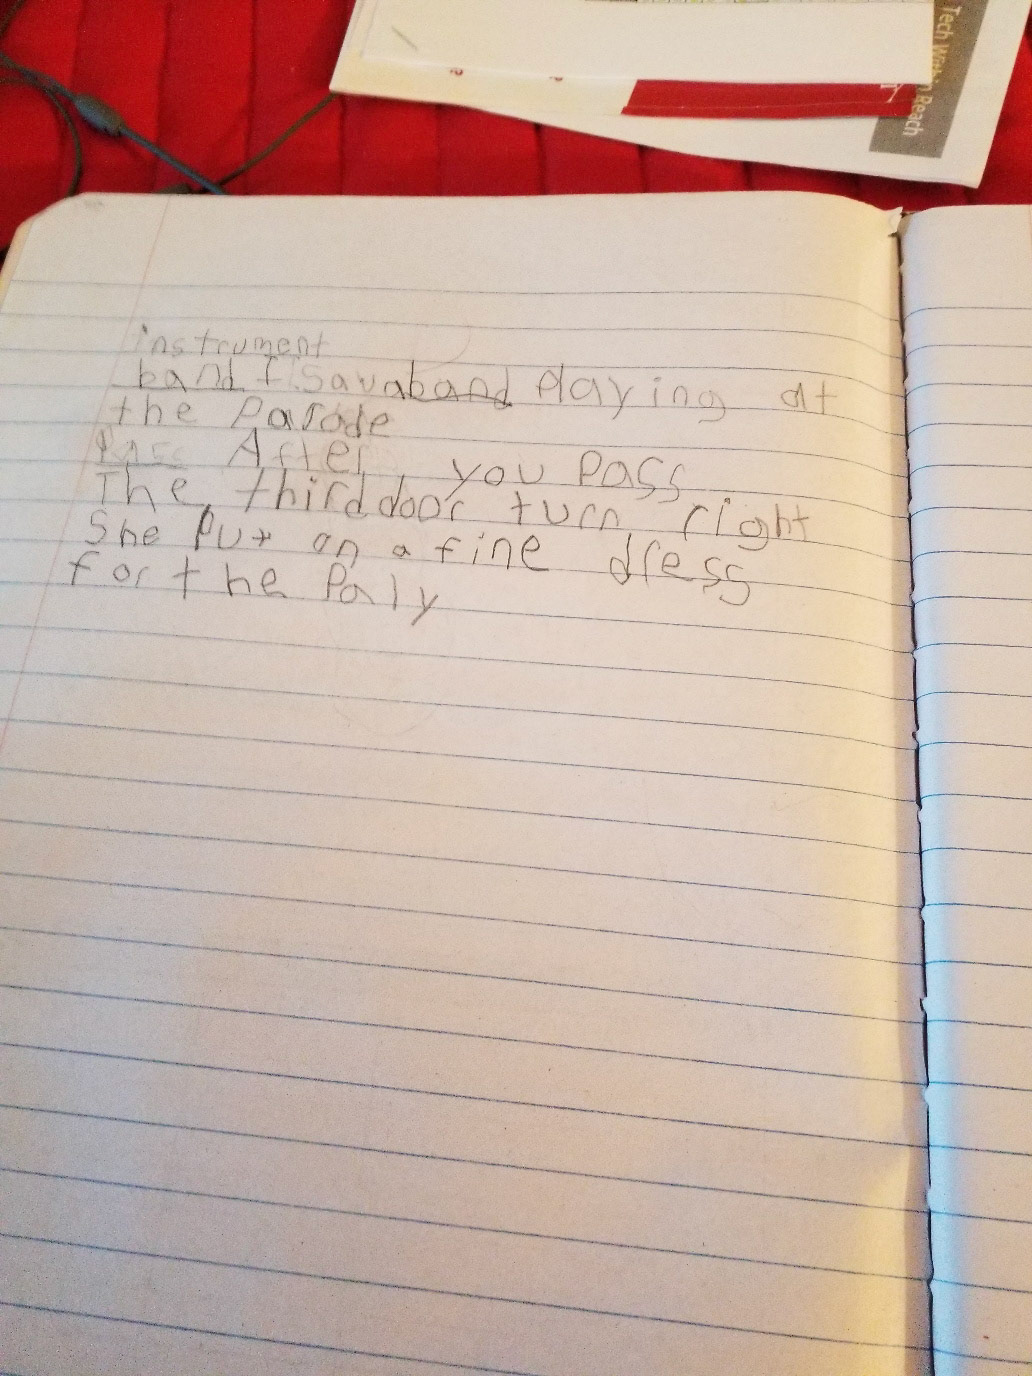 Tech Within Reach
instrument
band I Sawaband Playing at
the Parade
Pass After you Pass
The third door turn right
She Put on a fine dress
for the Paly